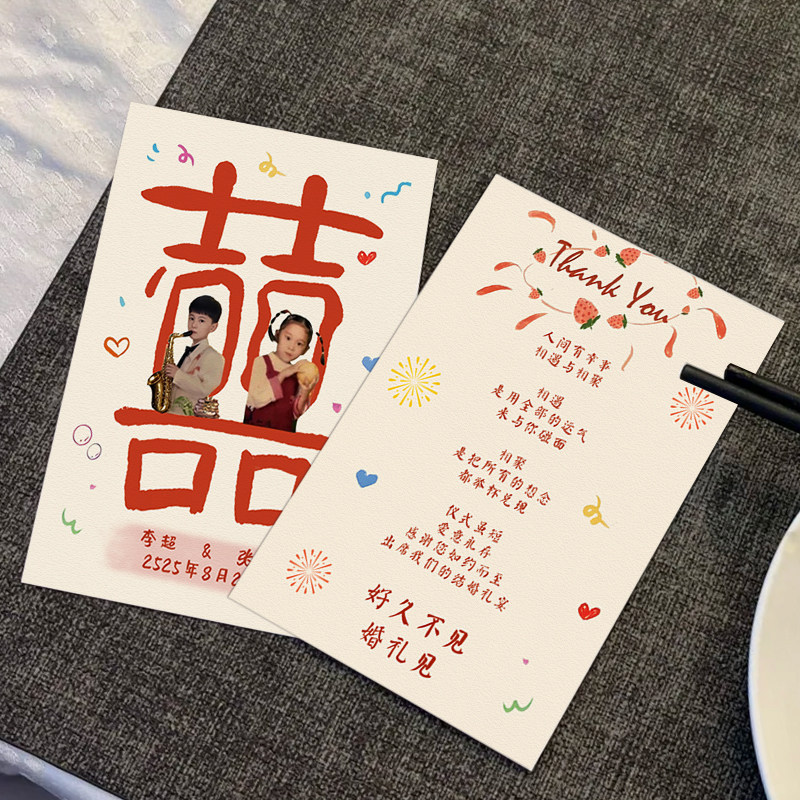 囍
李超 & 张
2525年8月2
Thank You
人间有幸事
相遇与相聚
相遇
是用全部的运气
来与你碰面
相聚
是把所有的想念
都举杯兑现
仪式虽短
爱意礼存
感谢您如约而至
出席我们的结婚礼宴
好久不见
婚礼见